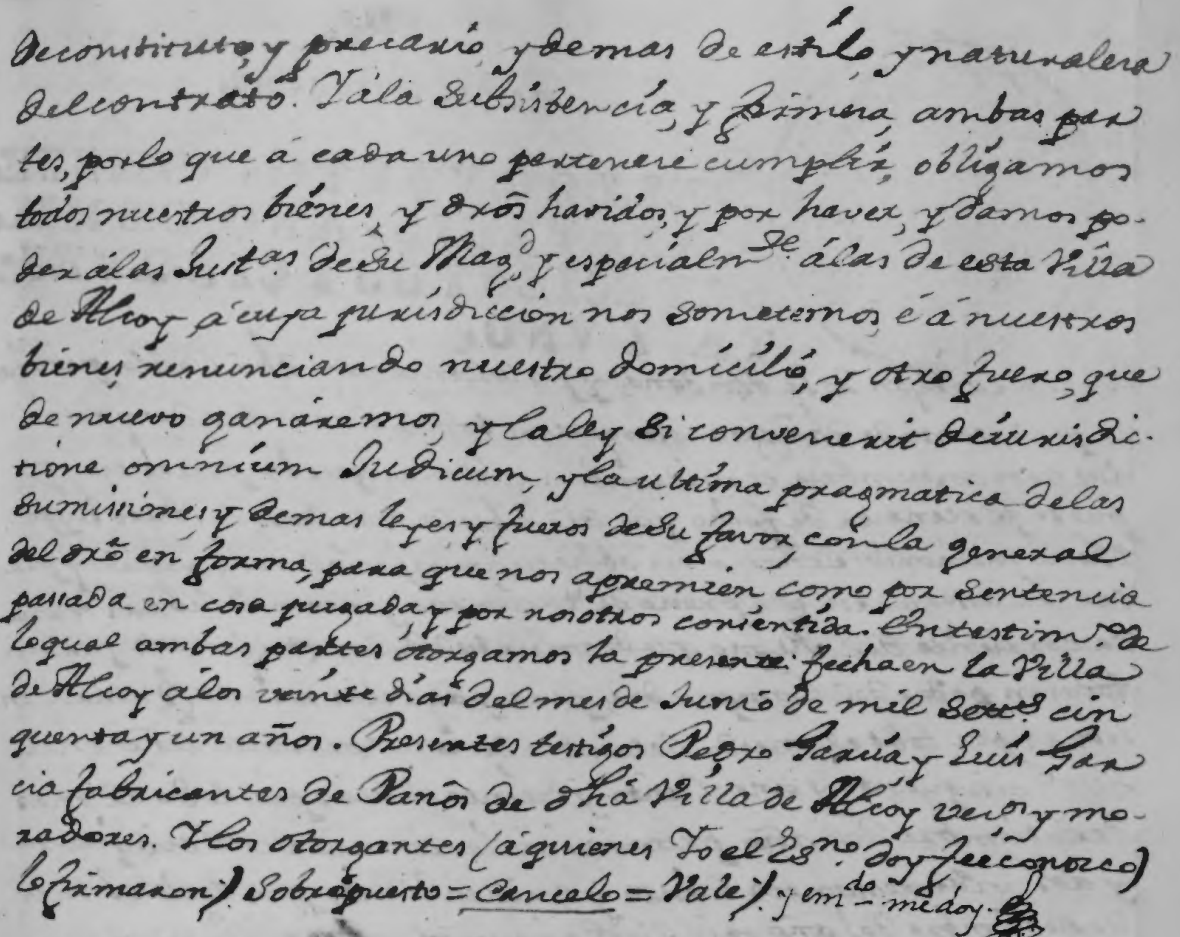 de constituto, y precario, y demas de estilo, y naturaleza
del contrato. Y á la subsistencia, y firmeza, ambas par
tes, por lo que á cada uno pertenece cumplir, obligamos
todos nuestros biénes, y drõs havidos, y por haver, y damos po-
der á las Justas. de Su Magd. y especialmte. á las de esta Villa
de Alcoy, á cuya jurisdiccion nos sometemos, é á nuestros
biénes, renunciando nuestro domicilió, y otro fuero, que
de nuevo ganáremos, y la ley si convenerit de iurisdic-
tione omnium Judicum, y la ultima pragmatica de las
sumissiones, y demas leyes y fueros de Su favor, con la general
del drõ en forma, para que nos apremien como por Sentencia
passada en cosa juzgada, y por nosotros consentida. En testimo. de
lo qual ambas partes otorgamos la presente fecha en la Villa
de Alcoy á los veinte dias del mes de Junio de mil setts. cin
quenta y un años. Presentes testigos Pedro Garcia, y Luis Gar
cia fabricantes de Panõs de dhá Villa de Alcoy vecos. y mo-
radores. Y los otorgantes (á quienes Yo el Esno. doy feé conozco)
lo firmaron.) Sobrepuesto = cancelo = Vale.) y emdo.